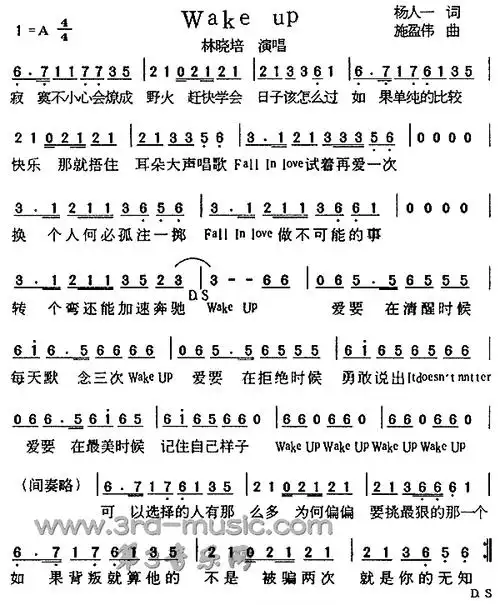 Wake up
杨人一 词
1=A 4/4
林晓培 演唱
施盈伟 曲
6·7117735 | 2102121 | 2133565 | 6·7176135 |
寂 寞不小心会燎成 野火 赶快学会 日子该怎么过 如 果单纯的比较
2102121 | 2133565 | 3·1211366561 | 0000 |
快乐 那就捂住 耳朵大声唱歌 Fall In love试着再爱一次
3·12113656 | 3·12113661 | 0000 |
换 个人何必孤注一掷 Fall In love 做不可能的事
3·12113523 | 3--66 | 065·56555 |
D.S
转 个弯还能加速奔驰 Wake UP 爱要 在清醒时候
6i6·566666 | 065·56555 |
每天默 念三次Wake UP 爱要 在拒绝时候 勇敢说出Itdoesn't matter
066·56i65 | 660660 | 660660660660 |
爱要 在最美时候 记住自己样子 Wake UP Wake UP Wake UP Wake UP
(间奏略) | 6·7176135 | 2102121 | 2136661 |
可 以选择的人有那 么多 为何偏偏 要挑最狠的那一个
www.3rd-music.com
第3音乐网
如 果背叛就算他的 不是 被骗两次 就是你的无知
D.S